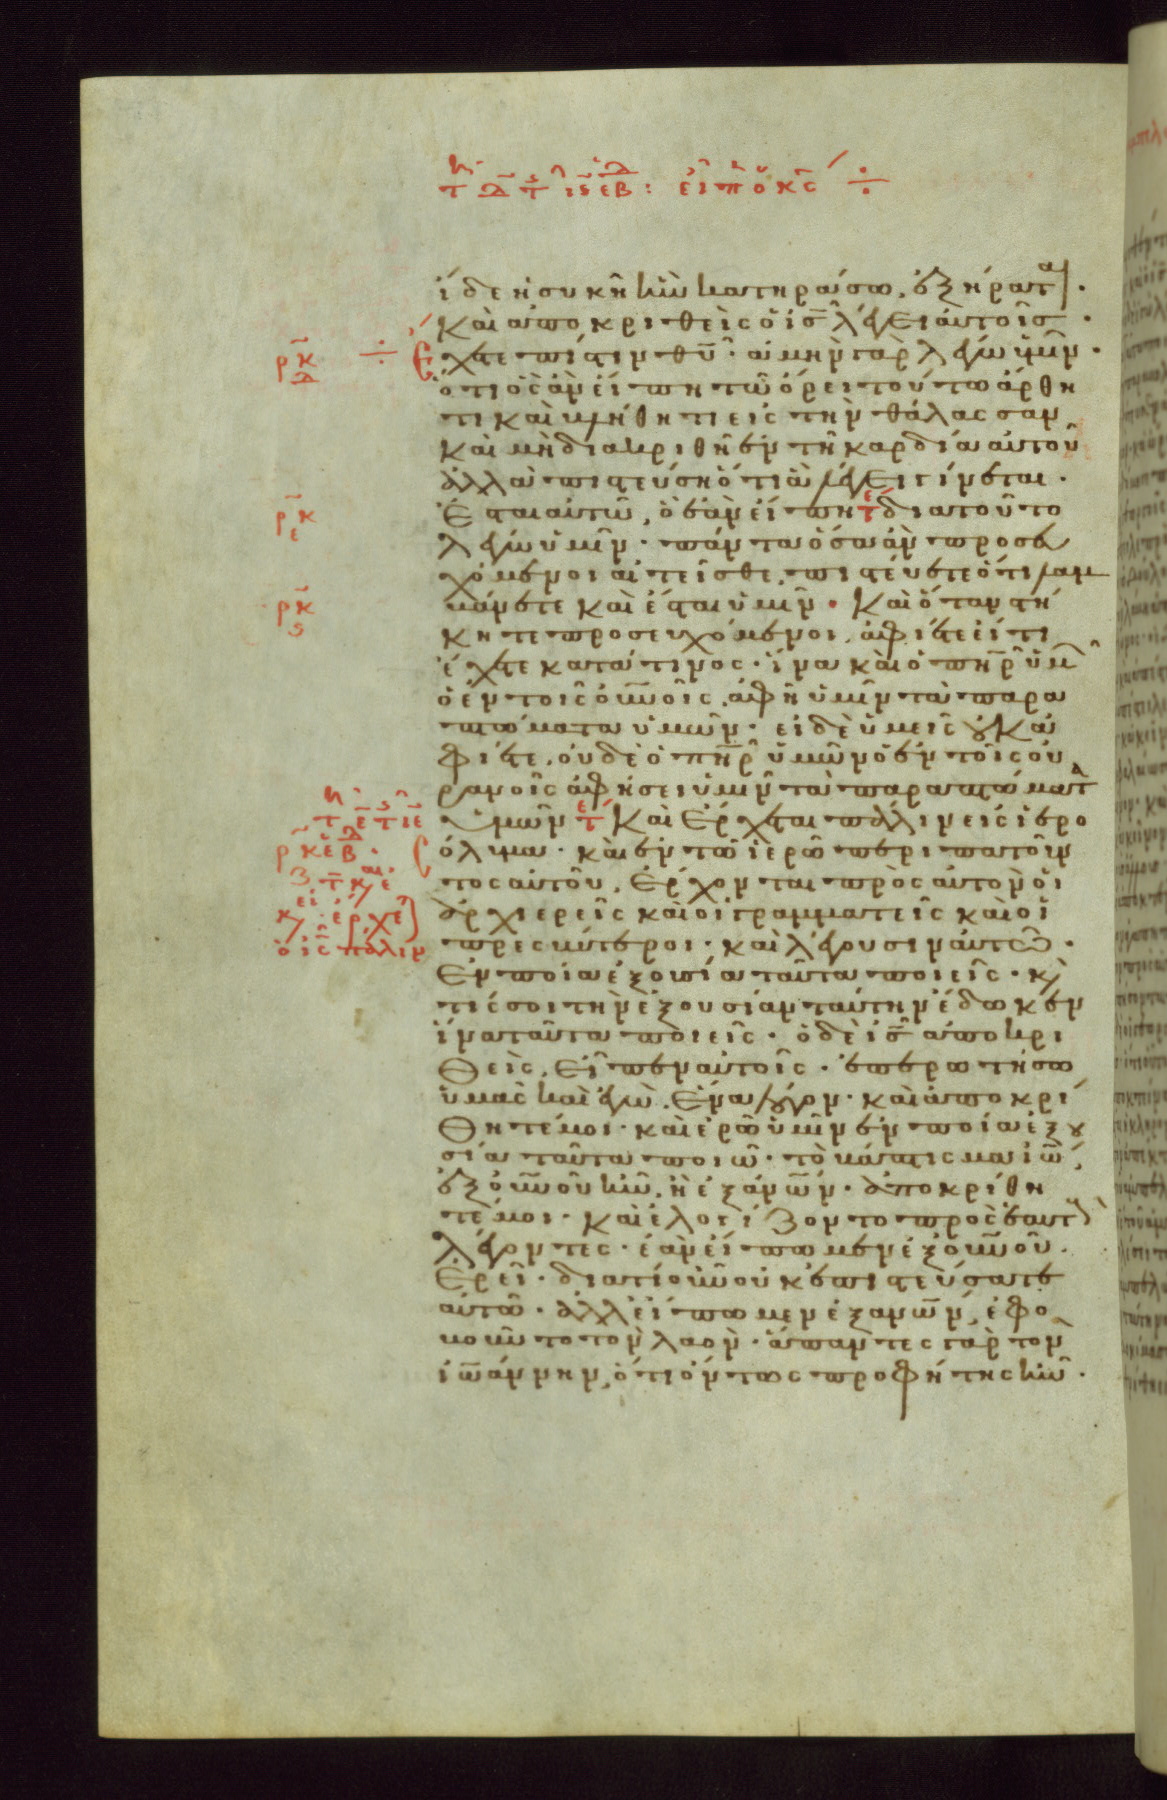 ἴδε ἡ συκῆ ἣν κατηράσω, ἐξήρατ
Καὶ ἀποκριθεὶς ὁ ις λέγει αὐτοῖς
Ἔχετε πίστιν θυ· ἀμὴν γὰρ λέγω ὑμῖν·
ὅτι ὃς ἂν εἴπη τῶ ὄρει τούτω ἄρθη
τι καὶ βλήθητι εἰς τὴν θάλασσαν
καὶ μὴ διακριθῆ ἐν τῆ καρδία αὐτοῦ
ἀλλὰ πιστεύση ὅτι ἃ λέγει γίνεται·
Ἔσται αὐτῶ, ὃ ἐὰν εἴπη διατοῦτο
λέγω ὑμῖν· πάντα ὅσα ἂν προσευ
χόμενοι αἰτεῖσθε, πιστεύετε ὅτι λαμ
βάνετε καὶ ἔσται ὑμῖν· Καὶ ὅταν στή
κητε προσευχόμενοι, ἀφίετε εἴ τι
ἔχετε κατά τινος· ἵνα καὶ ὁ πηρ ὑμῶν
ὁ ἐν τοῖς οὐνοῖς, ἀφῆ ὑμῖν τὰ παρα
πτώματα ὑμῶν· εἰ δὲ ὑμεῖς οὐκ ἀ
φίετε, οὐδὲ ὁ πηρ ὑμῶν ὁ ἐν τοῖς οὐ
ρανοῖς ἀφήσει ὑμῖν τὰ παραπτώματ
ὑμῶν Καὶ ἔρχεται πάλιν εἰς ἱερο
όλυμα· καὶ ἐν τῶ ἱερῶ περιπατοῦν
τος αὐτοῦ, ἔρχονται πρὸς αὐτὸν οἱ
ἀρχιερεῖς καὶ οἱ γραμματεῖς καὶ οἱ
πρεσβύτεροι· καὶ λέγουσιν αὐτῶ·
Ἐν ποία ἐξουσία ταῦτα ποιεῖς· κὶ
τίς σοι τὴν ἐξουσίαν ταύτην ἔδωκεν
ἵνα ταῦτα ποιεῖς· ὁ δὲ ις ἀποκρι
θεὶς, εἶπεν αὐτοῖς· ἐπερωτήσω
ὑμᾶς κἀγὼ, ἕνα λόγον· καὶ ἀποκρί
θητέ μοι· καὶ ἐρῶ ὑμῖν ἐν ποία ἐξου
σία ταῦτα ποιῶ· τὸ βάπτισμα ἰω,
ἐξ οὐνοῦ ἦν, ἢ ἐξ ἀνων· ἀποκρίθη
τέ μοι· καὶ ἐλογίζοντο πρὸς ἑαυτ
λέγοντες· ἐὰν εἴπωμεν ἐξ οὐνοῦ.
Ἐρεῖ· διατί οὖν οὐκ ἐπιστεύσατε
αὐτῶ· ἀλλ εἴπωμεν ἐξ ἀνων, ἐφο
βοῦντο τὸν λαὸν· ἅπαντες γὰρ τὸν
ἰωάννην, ὅτι ὄντως προφήτης ἦν·